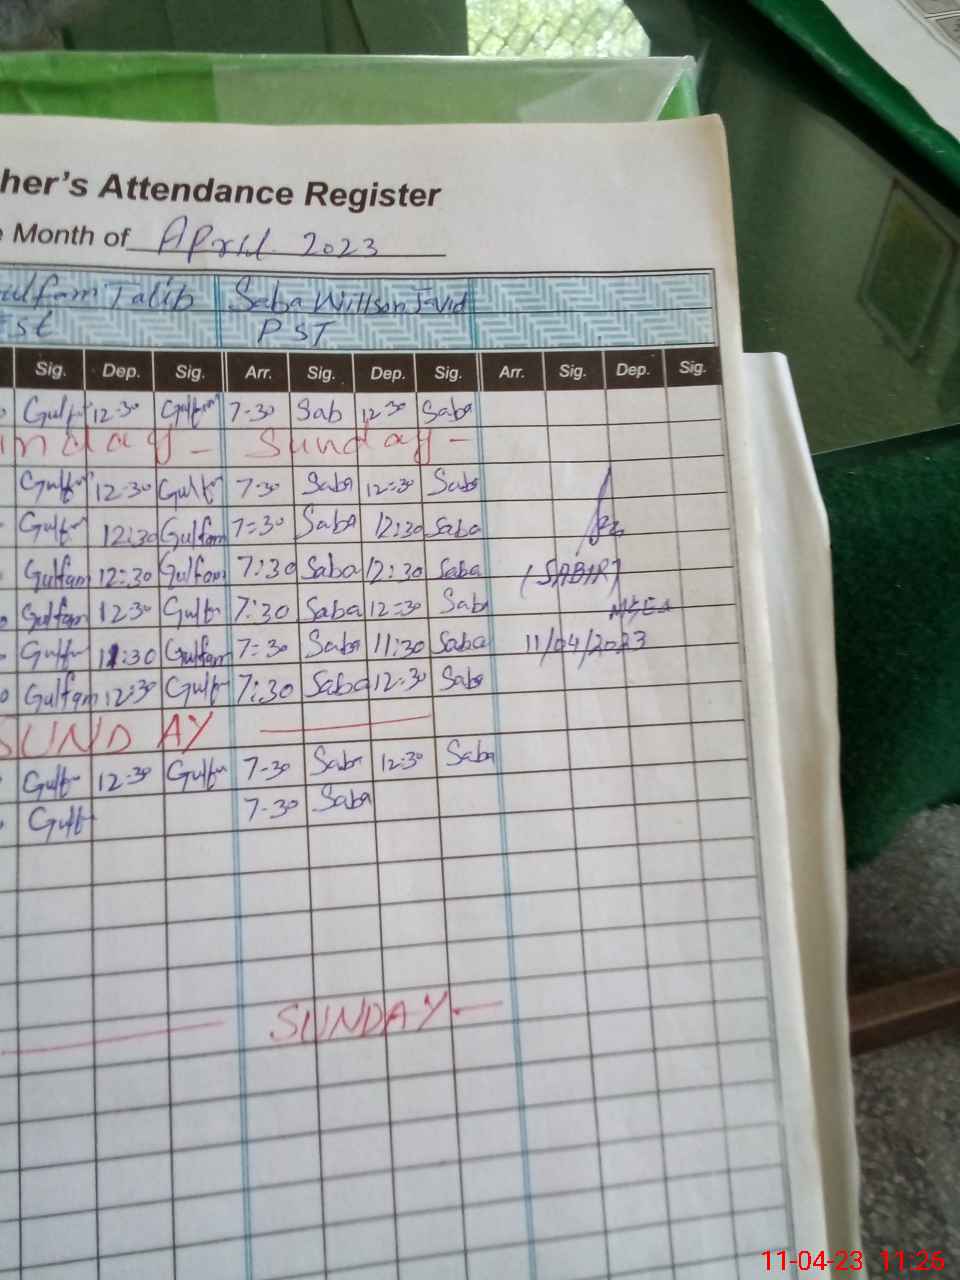 her's Attendance Register
Month of April 2023
ulfam Talib Saba Willson Javid
PST
Sig. Dep. Sig. Arr. Sig. Dep. Sig. Arr. Sig. Dep. Sig.
12-30 7-30 Sab 12-30 Saba
nday - Sunday -
12-30 7-30 Saba 12-30 Saba
12:30 Gulfam 7:30 Saba 12:30 Saba
Gulfam 12:30 Gulfam 7:30 Saba 12:30 Saba (SABIR)
Gulfam 12:30 7:30 Saba 12:30 Sab
11:30 Gulfam 7:30 Saba 11:30 Saba 11/04/2023
Gulfam 12:30 7:30 Saba 12:30 Saba
SUNDAY
12-30 7-30 Saba 12-30 Saba
7-30 Saba
SUNDAY
11-04-23 11:26